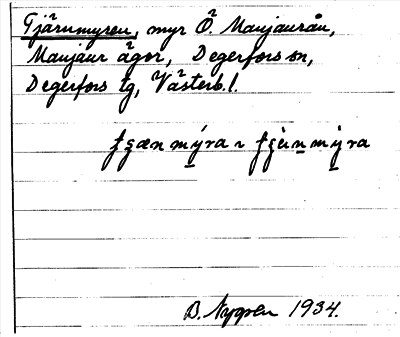 Tjärnmyren, myr Ö. Manjaurån,
Manjaur ägor, Degerfors sn,
Degerfors tg, Västerb.l.
mýra
B. Nygren 1934.